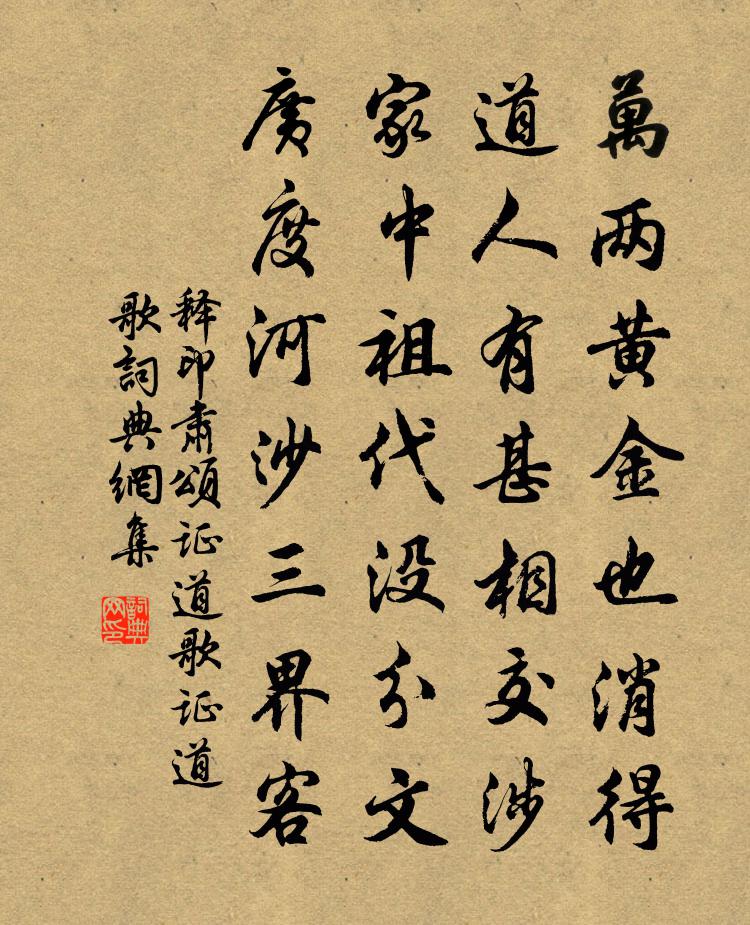 萬两黄金也消得
道人有甚相交涉
家中祖代没分文
廣度河沙三界客
释印肃頌证道歌证道
歌詞典網集
詞典网印